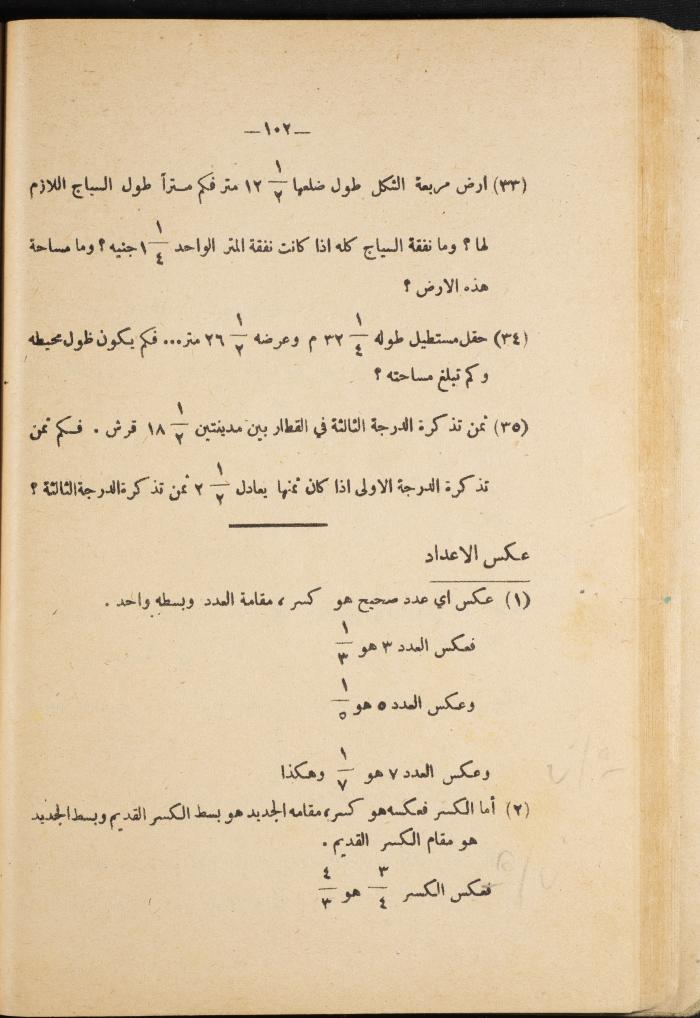 —١٠٢—
(٣٣) ارض مربعة الشكل طول ضلعها ١/٢ ١٢ متر فكم متراً طول السياج اللازم
لها ؟ وما نفقة السياج كله اذا كانت نفقة المتر الواحد ١/٤ ١ جنيه ؟ وما مساحة
هذه الارض ؟
(٣٤) حقل مستطيل طوله ١/٤ ٣٢ م وعرضه ١/٢ ٢٦ متر... فكم يكون ظول محيطه
وكم تبلغ مساحته ؟
(٣٥) ثمن تذكرة الدرجة الثالثة في القطار بين مدينتين ١/٢ ١٨ قرش . فكم ثمن
تذكرة الدرجة الاولى اذا كان ثمنها يعادل ١/٢ ٢ ثمن تذكرة الدرجة الثالثة ؟
عكس الاعداد
(١) عكس اي عدد صحيح هو كسر ، مقامة العدد وبسطه واحد .
فعكس العدد ٣ هو ١/٣
وعكس العدد ٥ هو ١/٥
وعكس العدد ٧ هو ١/٧ وهكذا
(٢) أما الكسر فعكسه هو كسر، مقامه الجديد هو بسط الكسر القديم وبسط الجديد
هو مقام الكسر القديم .
فعكس الكسر ٣/٤ هو ٤/٣